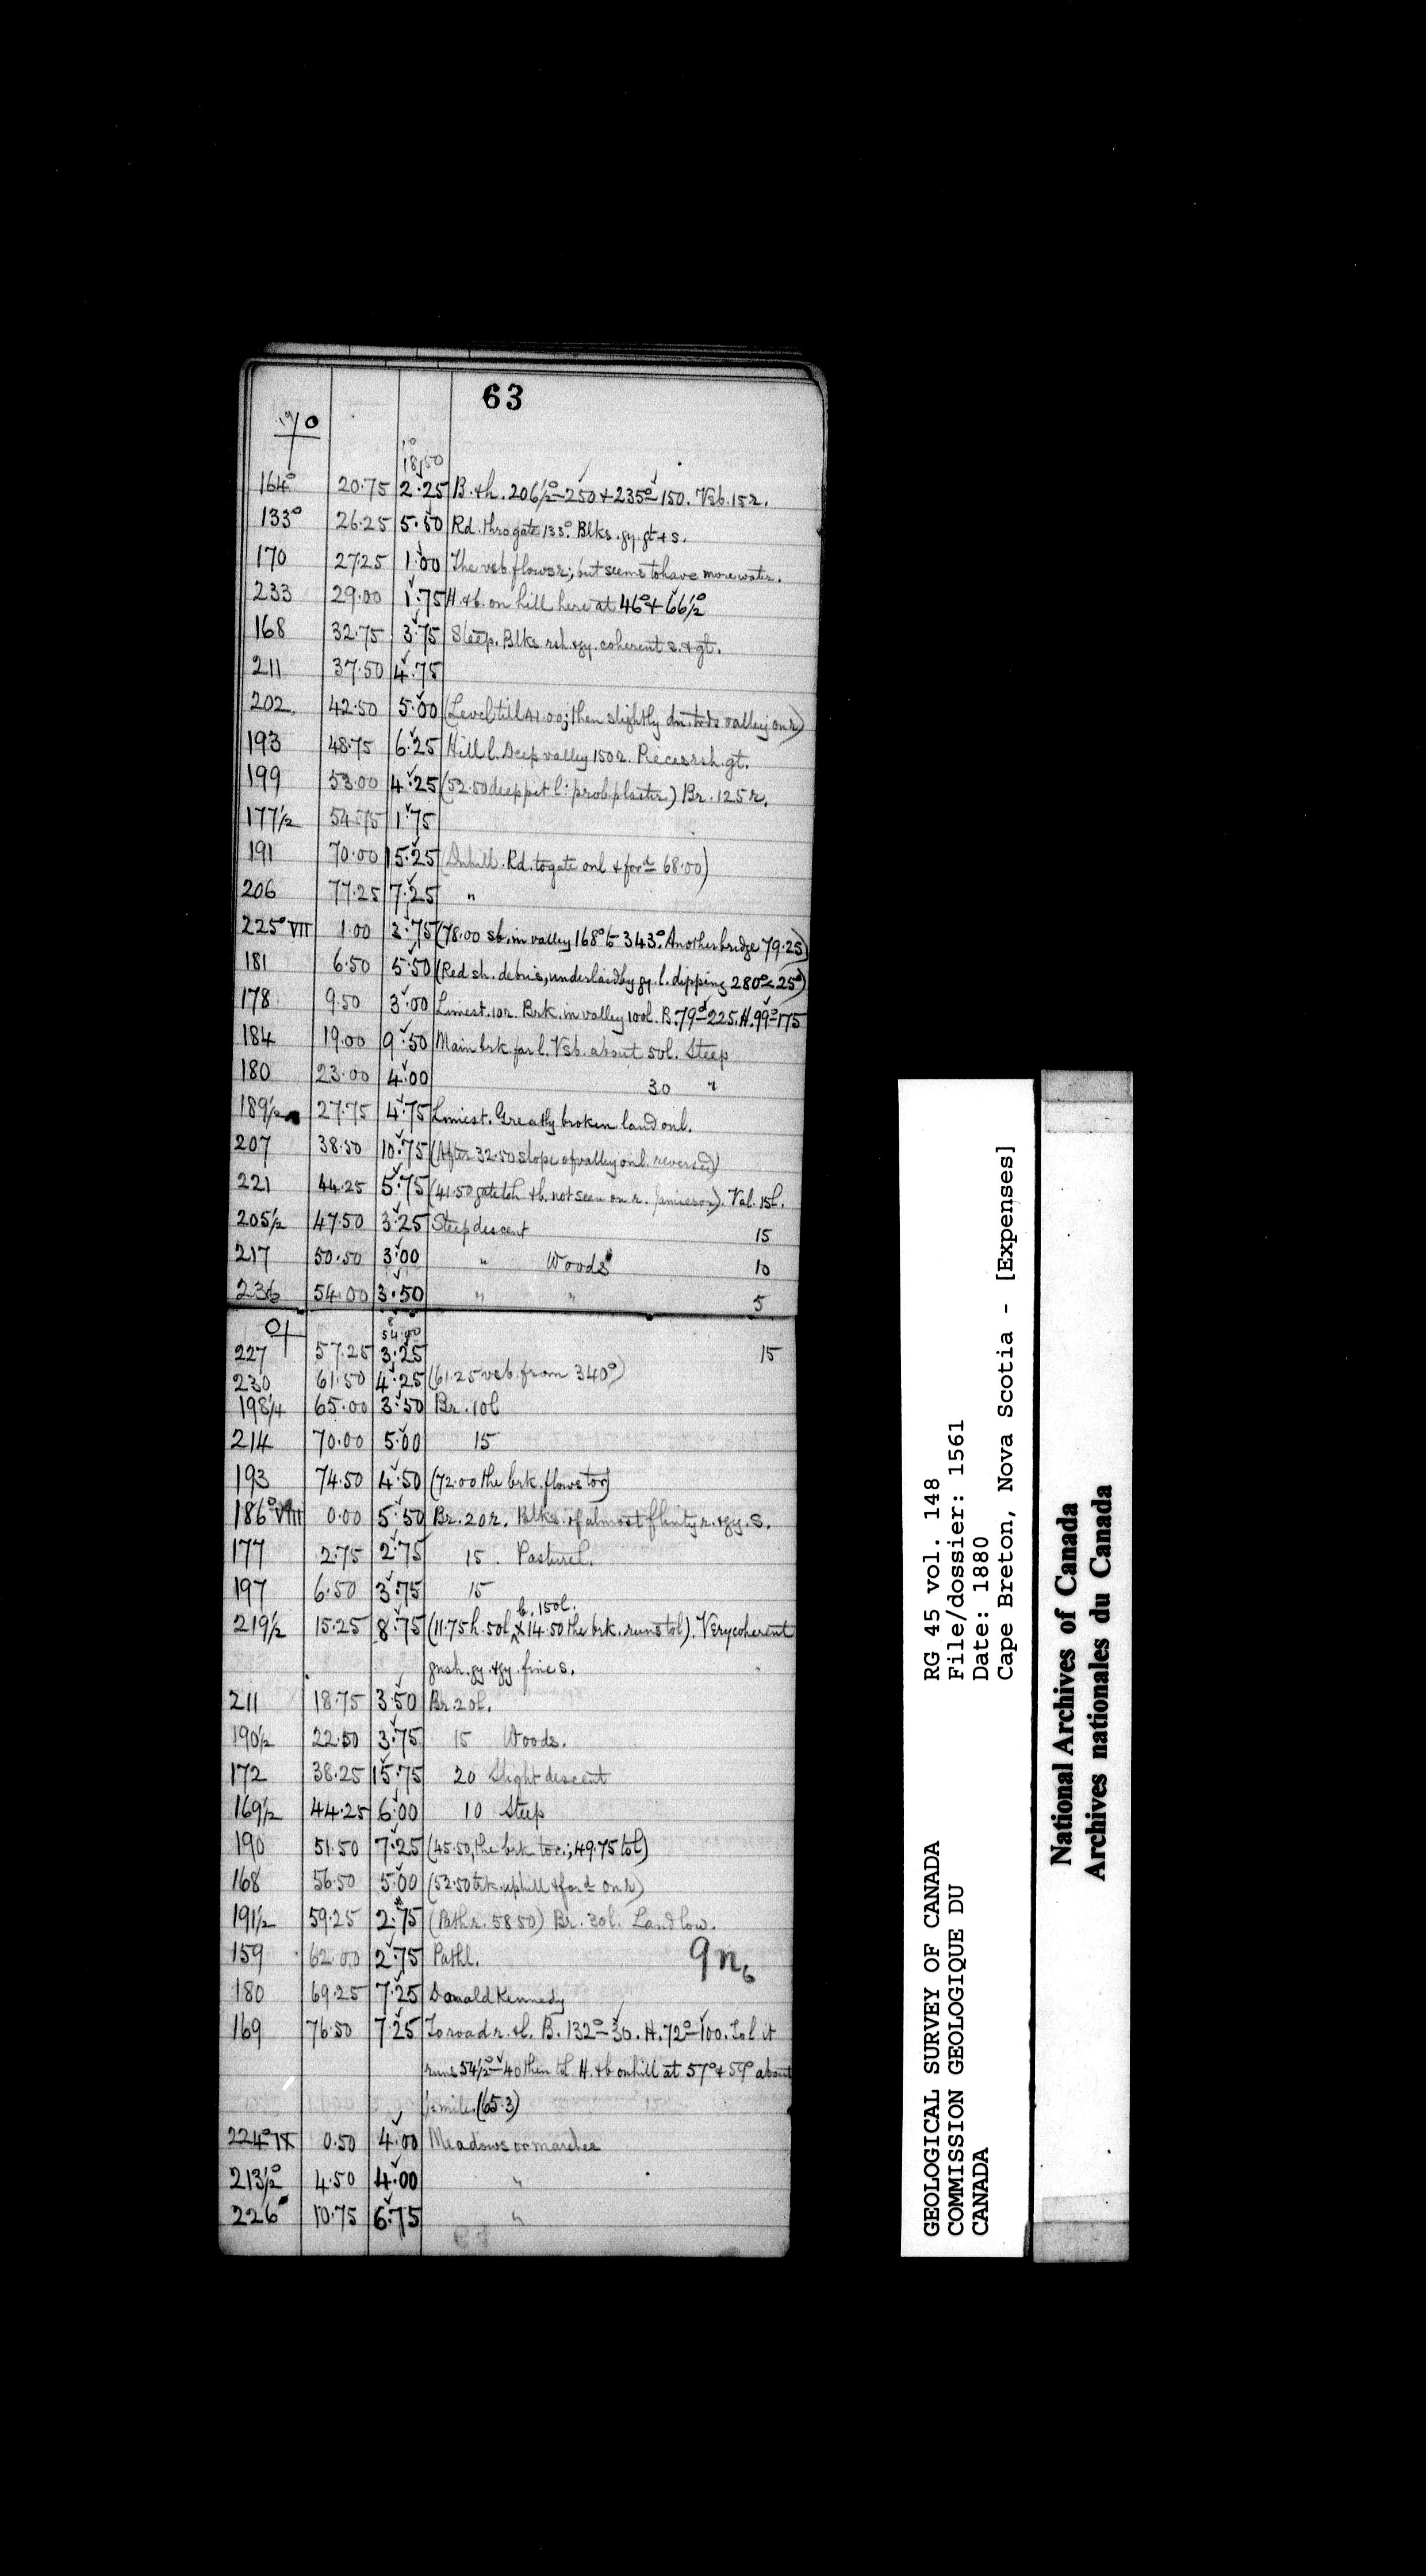 63
18.50
164° 20.75 2.25 B. & h. 206½°-250 & 235°-150. Vsb. 15 r.
133° 26.25 5.50 Rd. thro gate 133°. Blks. gy. gt & s.
170 27.25 1.00 The vsb flows r; but seems to have more water.
233 29.00 1.75 H. & b. on hill here at 46° & 66½°
168 32.75 3.75 Steep. Blks rsh & gy. coherent s. & gt.
211 37.50 4.75
202 42.50 5.00 (Level till 41.00; then slightly dn. tods valley on r)
193 48.75 6.25 Hill l. Deep valley 150 r. Pieces rsh. gt.
199 53.00 4.25 (52.50 deep pit l: prob. plaster) Br. 125 r.
177½ 54.75 1.75
191 70.00 15.25 (Dnhill. Rd. to gate on l & for d 68.00)
206 77.25 7.25 "
225° VII 1.00 3.75 (78.00 sb. in valley 168° to 343°. Another bridge 79.25)
181 6.50 5.50 (Red sh. debris, underlaid by gy. l. dipping 280°-25°)
178 9.50 3.00 Limest. 10 r. Brk. in valley 100 l. B. 79°-225. H. 99°-175
184 19.00 9.50 Main brk far l. Vsb. about 50 l. Steep
180 23.00 4.00 30 "
189½ 27.75 4.75 Limest. Greatly broken land on l.
207 38.50 10.75 (After 32.50 slope of valley on l. reversed)
221 44.25 5.75 (41.50 gate to h & b. not seen on r. Jamieson). Val. 15 l.
205½ 47.50 3.25 Steep descent 15
217 50.50 3.00 " Woods 10
236 54.00 3.50 " " 5
54.00
227 57.25 3.25 15
230 61.50 4.25 (61.25 vsb. from 340°)
198¼ 65.00 3.50 Br. 10 l
214 70.00 5.00 15
193 74.50 4.50 (72.00 the brk. flows to r)
186° VIII 0.00 5.50 Br. 20 r. Blks. of almost flinty r. & gy. s.
177 2.75 2.75 15. Pasture l.
197 6.50 3.75 15
b. 150 l.
219½ 15.25 8.75 (11.75 h. 50 l, & 14.50 the brk. runs to l). Very coherent
gnsh. gy. & gy. fine s.
211 18.75 3.50 Br. 20 l.
190½ 22.50 3.75 15 Woods.
172 38.25 15.75 20 Slight descent
169½ 44.25 6.00 10 Steep
190 51.50 7.25 (45.50, the brk to r.; 49.75 to l)
168 56.50 5.00 (52.50 trk. uphill & for d on r)
191½ 59.25 2.75 (Path r. 58.50) Br. 30 l. Land low.
159 62.00 2.75 Path l.
9n6
180 69.25 7.25 Donald Kennedy
169 76.50 7.25 To road r. & l. B. 132°-30. H. 72°-100. To l it
runs 54½°-40 then to l. H. & b on hill at 57° & 59° about
½ mile. (65.3)
224° IX 0.50 4.00 Meadows or marshes
213½° 4.50 4.00 "
226° 10.75 6.75 "
GEOLOGICAL SURVEY OF CANADA
COMMISSION GEOLOGIQUE DU
CANADA
RG 45 vol. 148
File/dossier: 1561
Date: 1880
Cape Breton, Nova Scotia - [Expenses]
National Archives of Canada
Archives nationales du Canada